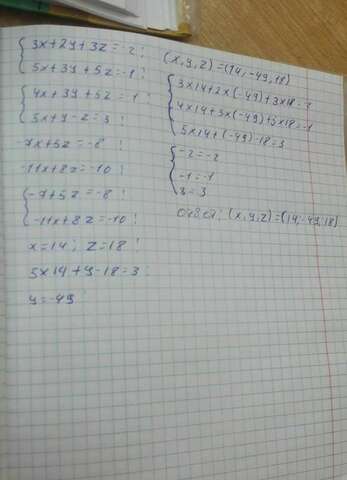 3x+2y+3z=-2;
5x+3y+5z=-1;
4x+3y+5z=-1;
5x+y-z=3;
-7x+5z=-8;
-11x+8z=-10;
-7+5z=-8;
-11x+8z=-10;
x=14; z=18;
5x14+y-18=3;
y=-49
(x,y,z)=(14,-49,18)
3x14+2x(-49)+3x18=-2
4x14+3x(-49)+5x18=-1
5x14+(-49)-18=3
-2=-2
-1=-1
3=3
Ответ: (x,y,z)=(14,-49,18)